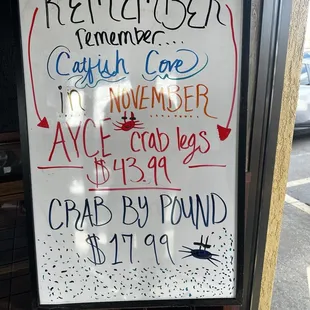 REMEMBER
remember....
Catfish Cove
in NOVEMBER
AYCE crab legs
$43.99
CRAB BY POUND
$17.99